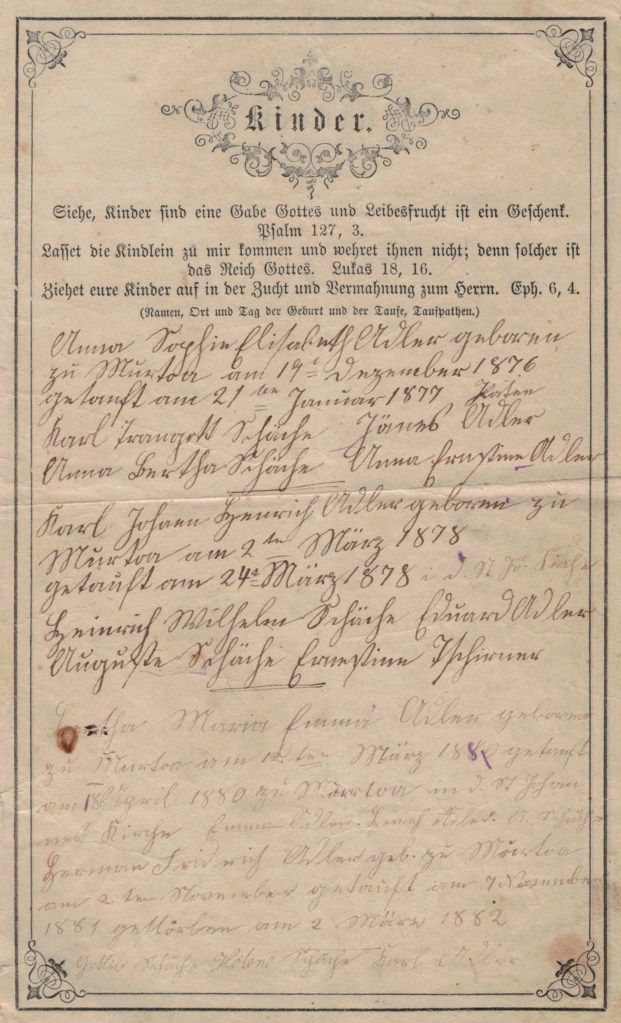 Kinder.
Siehe, Kinder sind eine Gabe Gottes und Leibesfrucht ist ein Geschenk.
Psalm 127, 3.
Lasset die Kindlein zu mir kommen und wehret ihnen nicht; denn solcher ist
das Reich Gottes. Lukas 18, 16.
Ziehet eure Kinder auf in der Zucht und Vermahnung zum Herrn. Eph. 6, 4.
(Namen, Ort und Tag der Geburt und der Taufe, Taufpathen.)
Anna Sophie Elisabeth Adler geboren
zu Murtoa am 19t Dezember 1876
getauft am 21ten Januar 1877 Paten
Karl Traugott Schäche Adler
Anna Bertha Schäche Anna Ernestine Adler
Karl Johann Heinrich Adler geboren zu
Murtoa am 2ten März 1878
getauft am 24t März 1878 i d. St Jo. Kirche
Heinrich Wilhelm Schäche Eduard Adler
Auguste Schäche Ernestine Tschirner
Bertha Maria Emma Adler geboren
zu Murtoa am ten März 1880 getauft
am 18 April 1880 zu Murtoa in d. St Johan
nes Kirche Emma Adler
Herman Fridrich Adler geb. zu Murtoa
am 2ten November getauft am November
1881 gestorben am 2 März 1882
Schäche Schäche Karl Adler